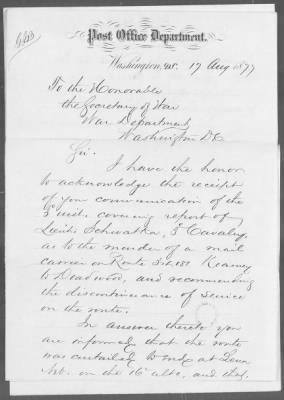 Post Office Department.
Washington, D.C. 17 Aug 1877
To the Honorable
the Secretary of War
War Department,
Washington DC
Sir.
I have the honor
to acknowledge the receipt
of your communication of the
3 inst. covering report of
Lieut. Schwatka, 3d Cavalry,
as to the murder of a mail
carrier on Route Kearney
to Deadwood, and recommending
the discontinuance of service
on the route.
In answer thereto you
are informed that the route
was curtailed to end at
Neb. on the 16" ulto. and that